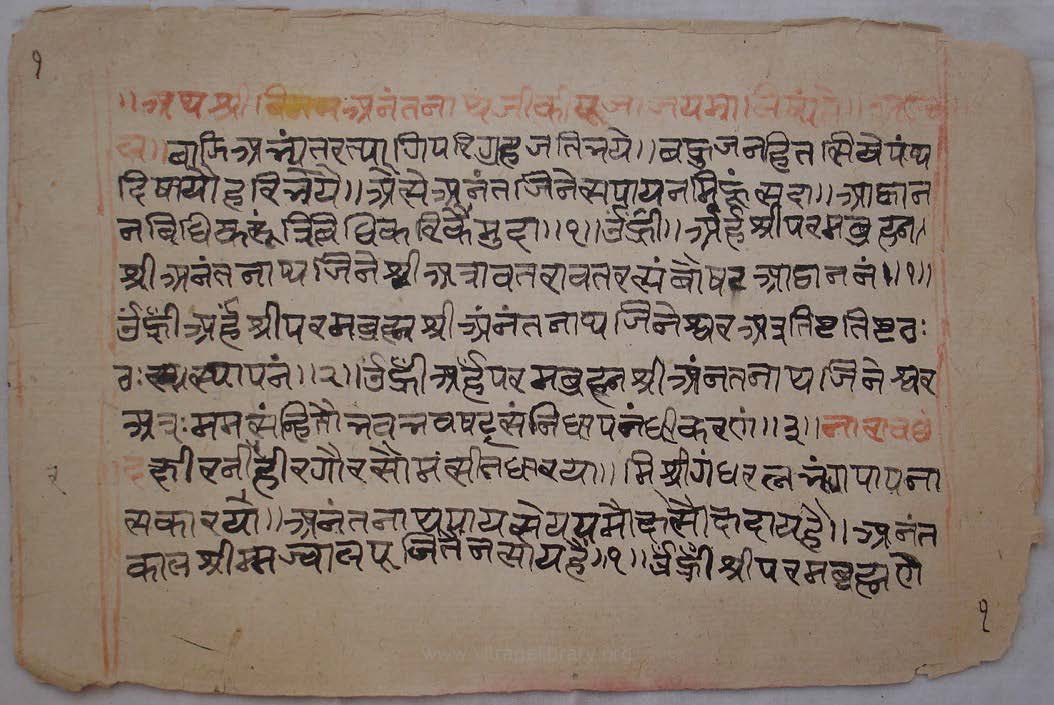 १
।।अथ श्री अनंतनाथजीकी पूजा जयमा
बाजि अभ्यंतर त्यागि परिग्रह जति भये।। बहुजन हित पंथ
दिषाय हरि भये।। ऐसे अनंत जिनेस पाय नमि हूं सदा।। आह्वान
न विधि करूं त्रिविधि करिकै मुदा।।१।। उँह्रीं।। अर्हं श्री परमब्रह्मन
श्री अनंतनाथ जिने श्री अत्रावतरावतर संबौषट आह्वाननं।।१।।
उँह्रीं अर्हं श्री परमब्रह्म श्री अंनंतनाथ जिनेश्वर अत्र तिष्ट तिष्ट ठः
ठः स्थापनं।।२।। उँह्रीं अर्हं परमब्रह्मन श्री अंनतनाथ जिनेश्वर
अत्रः मम संन्हितौ भव भव वषट् संनिधापनं धीकरणं।।३।। नाराच छं
द क्षीर नीर हीर गौर सौम सीत धारया।। मिश्री गंध रत्न पाप ना
सकारया।। अनंतनाथ पाय सेय मोक्ष सौक्ष दाय है।। अनंत
काल श्रीमज्वाल पूजितै नसाय है।।१।। उँह्रीं श्री परमब्रह्मणे
२
१
www.vitragelibrary.org